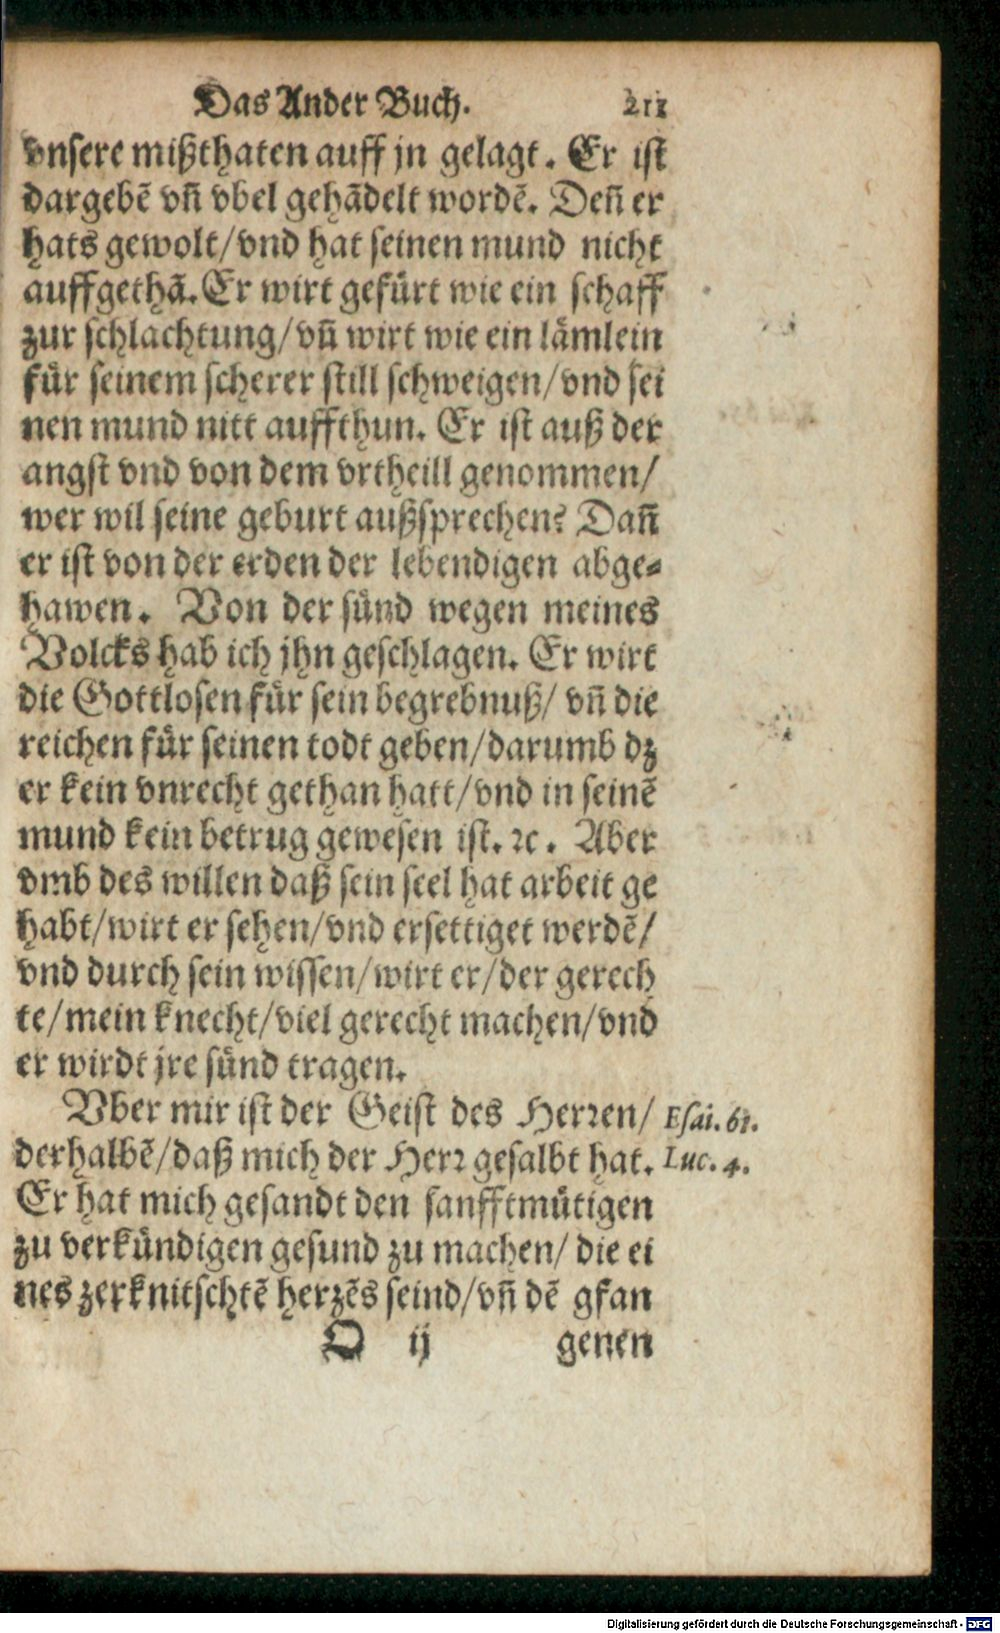 Das Ander Buch. 211
vnsere mißthaten auff jn gelagt. Er ist
dargebẽ vñ vbel gehãdelt wordẽ. Deñ er
hats gewolt/vnd hat seinen mund nicht
auffgethã. Er wirt gefürt wie ein schaff
zur schlachtung/vñ wirt wie ein lämlein
für seinem scherer still schweigen/vnd sei
nen mund nitt auffthun. Er ist auß der
angst vnd von dem vrtheill genommen/
wer wil seine geburt außsprechen? Dañ
er ist von der erden der lebendigen abge-
hawen. Von der sünd wegen meines
Volcks hab ich jhn geschlagen. Er wirt
die Gottlosen für sein begrebnuß/ vñ die
reichen für seinen todt geben/darumb dz
er kein vnrecht gethan hatt/vnd in seinẽ
mund kein betrug gewesen ist. ꝛc. Aber
vmb des willen daß sein seel hat arbeit ge
habt/wirt er sehen/vnd ersettiget werdẽ/
vnd durch sein wissen/wirt er/der gerech
te/mein knecht/viel gerecht machen/vnd
er wirdt jre sünd tragen.
Vber mir ist der Geist des Herren/ Esai. 61.
derhalbẽ/daß mich der Herr gesalbt hat. Luc. 4.
Er hat mich gesandt den sanfftmütigen
zu verkündigen gesund zu machen/ die ei
nes zerknitschtẽ herzẽs seind/vñ dẽ gfan
O ij genen
Digitalisierung gefördert durch die Deutsche Forschungsgemeinschaft - DFG